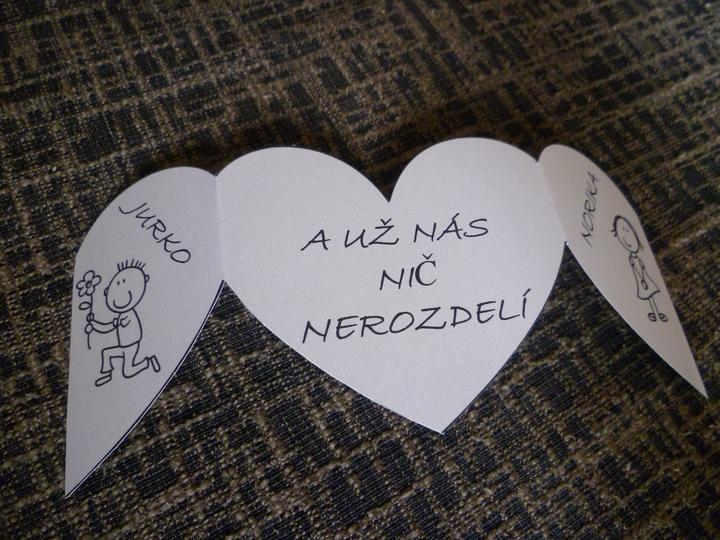 JURKO
A UŽ NÁS
NIČ
NEROZDELÍ
NORIKA